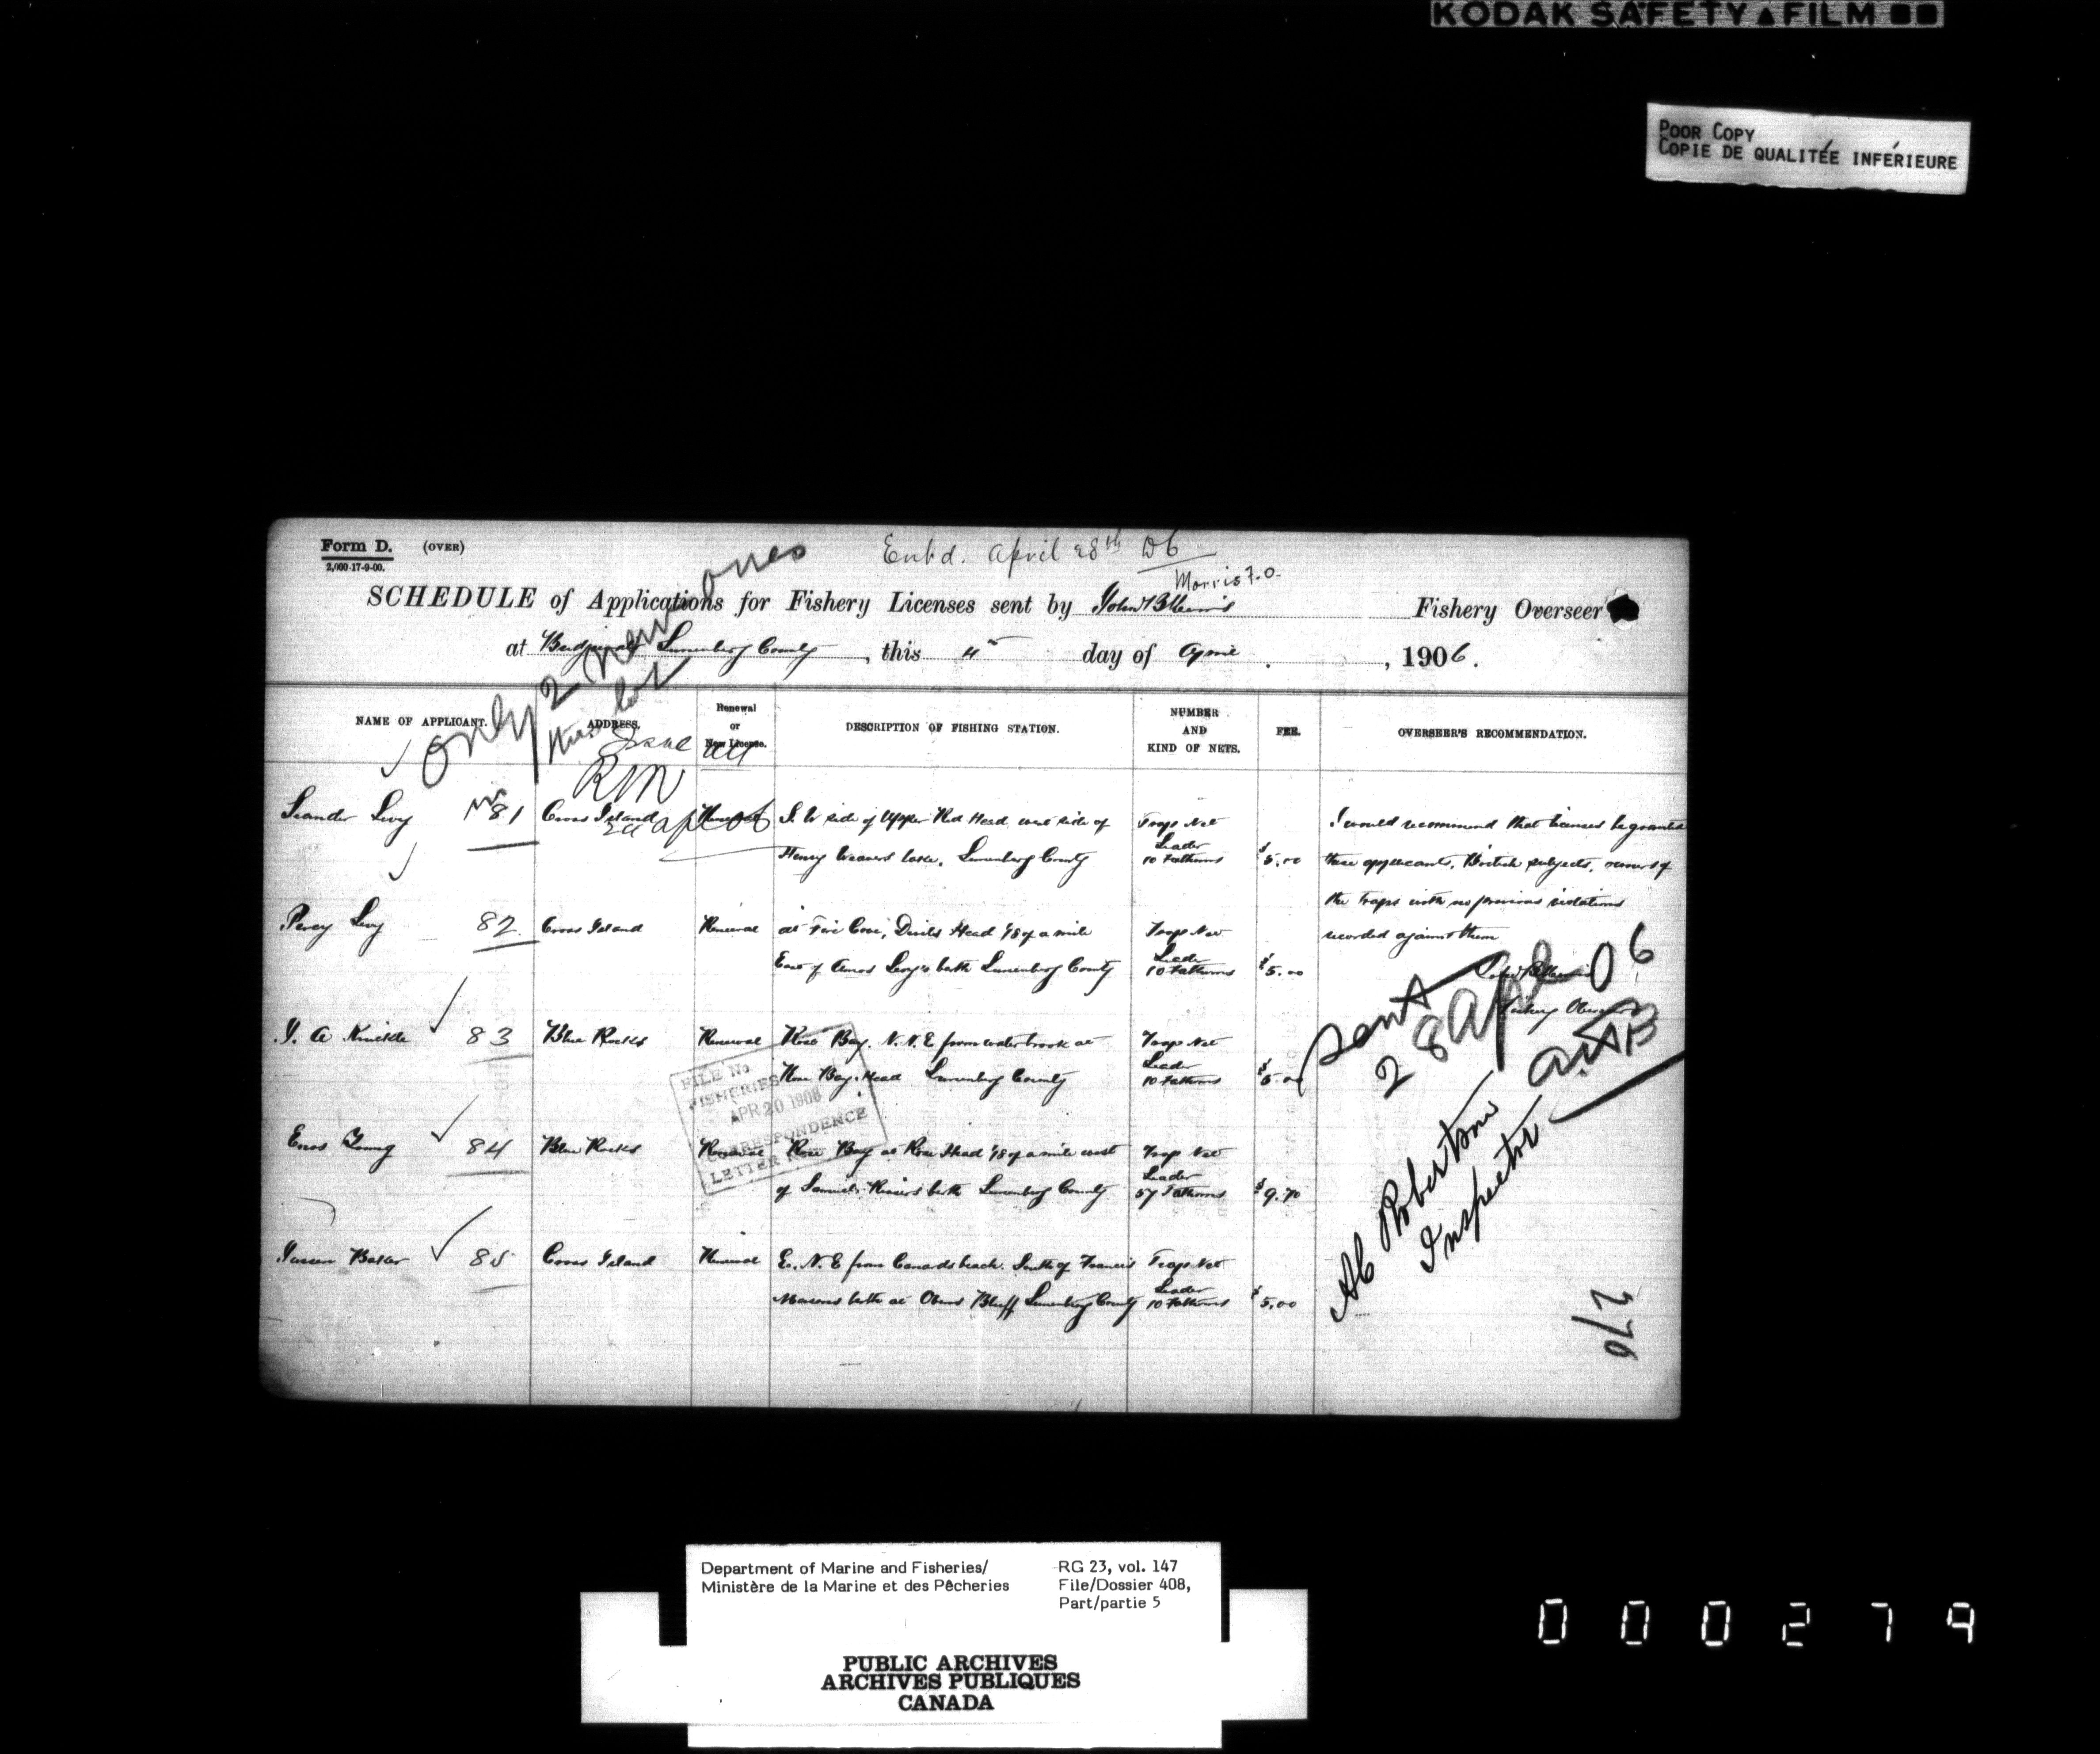 KODAK SAFETY▲FILM
POOR COPY
COPIE DE QUALITÉE INFÉRIEURE
Form D. (OVER)
2,000-17-9-00.
Ent'd. April 28th 06
only 2 new ones
this lot
Morris F.O.
SCHEDULE of Applications for Fishery Licenses sent by John B Morris Fishery Overseer
at Lunenburg County, this 4th day of April, 1906.
NAME OF APPLICANT.
ADDRESS.
Renewal
or
New License.
DESCRIPTION OF FISHING STATION.
NUMBER
AND
KIND OF NETS.
FEE.
OVERSEER'S RECOMMENDATION.
Issue all
RNV
Leander Levy 81 Cross Island Renewal S. W side of Upper Red Head west side of Trap Net
Henry Weavers lake, Lunenburg County Leader 10 Fathoms $5.00
Percy Levy 82 Cross Island Renewal at Fire Cove, Devils Head 1/8 of a mile Trap Net
East of Amos Levy's berth Lunenburg County Leader 10 Fathoms $5.00
83 Blue Rocks Renewal Rose Bay. N. N. E from water brook at Trap Net
Rose Bay Head Lunenburg County Leader 10 Fathoms $5.00
Enos Young 84 Blue Rocks Renewal Rose Bay at Rose Head 1/8 of a mile west Trap Net
of berth Lunenburg County Leader 57 Fathoms $9.70
Baker 85 Cross Island Renewal E. N. E from beach. South of Francis Trap Net
Masons berth at Bluff Lunenburg County Leader 10 Fathoms $5.00
I would recommend that licenses be granted
these applicants, British subjects, owners of
the traps with no previous violations
recorded against them
John B Morris
Fishery Overseer
Sent
28 Apl 06
Robertson
Inspector
276
FILE No.
FISHERIES
APR 20 1906
CORRESPONDENCE
LETTER
Department of Marine and Fisheries/
Ministère de la Marine et des Pêcheries
RG 23, vol. 147
File/Dossier 408,
Part/partie 5
PUBLIC ARCHIVES
ARCHIVES PUBLIQUES
CANADA
000279